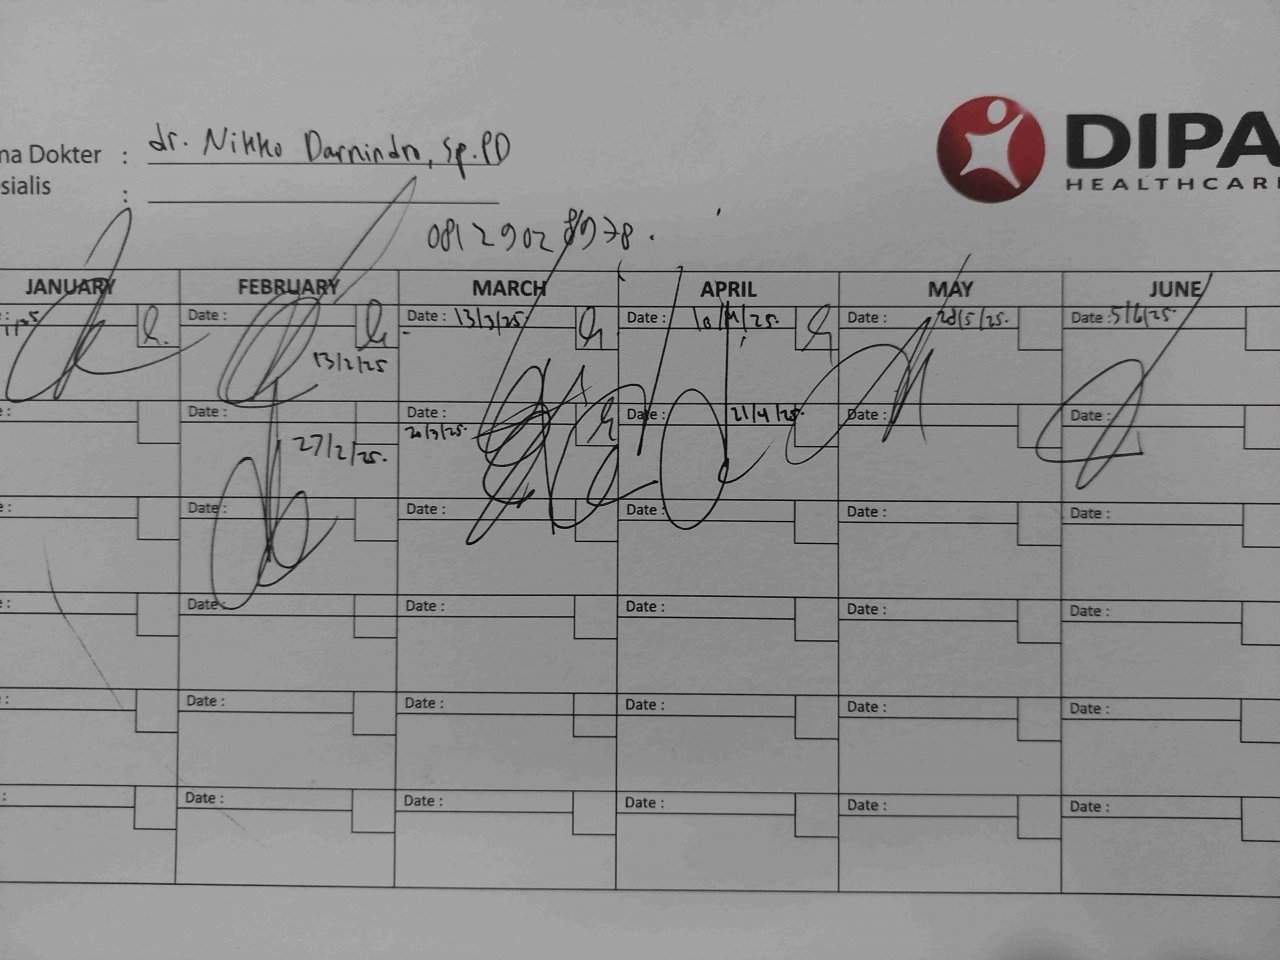 dr. Nikko Darnindro, Sp.PD
ma Dokter :
sialis :
DIPA
HEALTHCARE
0812 9028978.
JANUARY FEBRUARY MARCH APRIL MAY JUNE
Date : Date : 13/3/25 Date : 10/4/25. Date : 28/5/25. Date : 5/6/25
13/2/25
Date : Date : Date : 21/4/25. Date : Date :
27/2/25. 20/3/25.
Date : Date : Date : Date : Date :
Date : Date : Date : Date : Date :
Date : Date : Date : Date : Date :
Date : Date : Date : Date : Date :